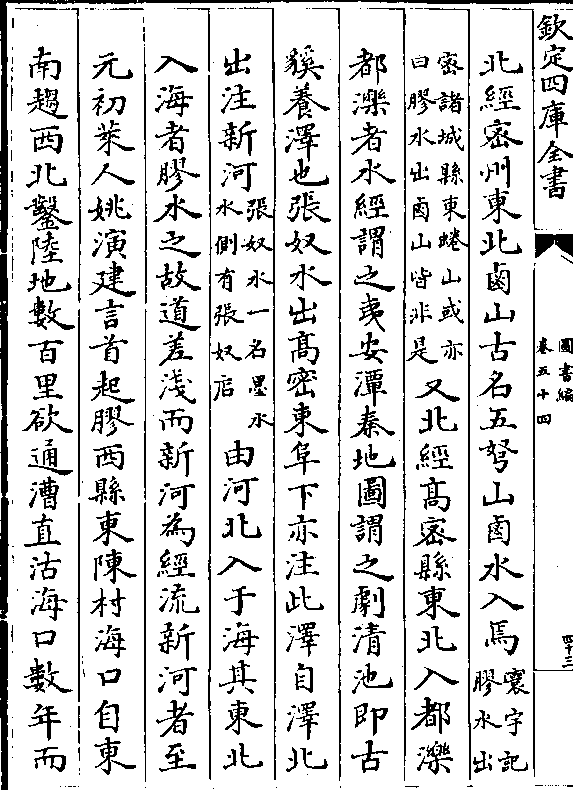 欽定四庫全書
圖書編
卷五十四
四十三
北經密州東北鹵山古名五弩山鹵水入焉寰宇記膠水出
密諸城縣東蜷山或亦曰膠水出鹵山皆非是又北經高密縣東北入都濼
都濼者水經謂之夷安潭秦地圖謂之劇清池即古
貕養澤也張奴水出高密東阜下亦注此澤自澤北
出注新河張奴水一名墨水水側有張奴店由河北入于海其東北
入海者膠水之故道差淺而新河為經流新河者至
元初萊人姚演建言首起膠西縣東陳村海口自東
南趨西北鑿陸地數百里欲通漕直沽海口數年而